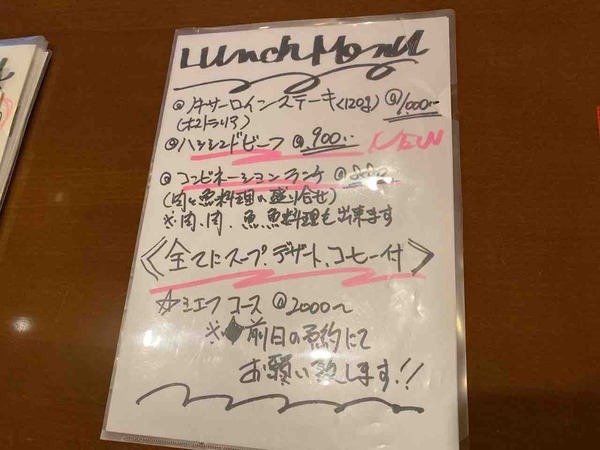 Lunch Menu
◎牛サーロインステーキ(120g) @1,000-
(オーストラリア)
◎ハッシュドビーフ @900- NEW
◎コンビネーションランチ
(肉と魚料理の盛り合せ)
※肉、肉、魚魚料理も出来ます
《全てにスープ、デザート、コーヒー付》
☆シェフコース @2000〜
※前日の予約にて
お願い致します!!